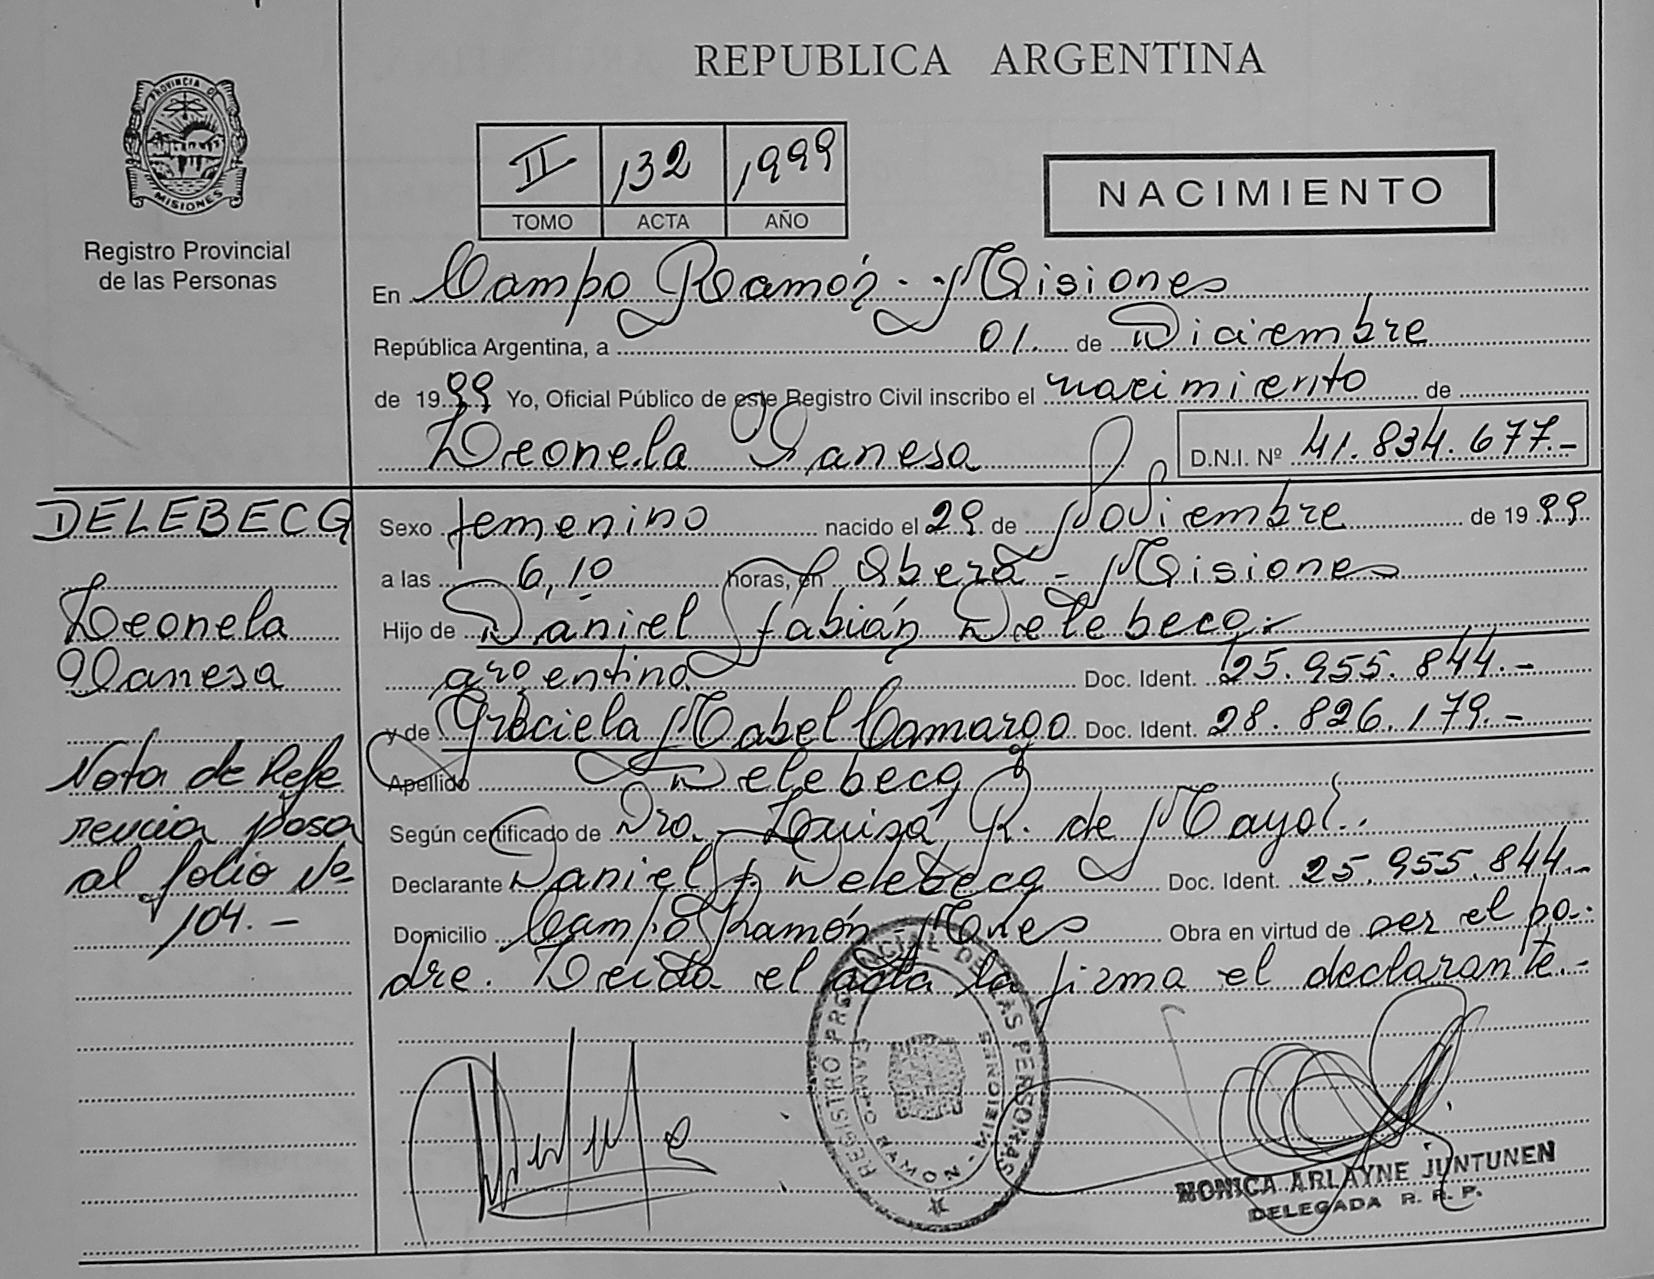 REPUBLICA ARGENTINA
PROVINCIA DE
MISIONES
Registro Provincial
de las Personas
II 132 1999
TOMO ACTA AÑO
NACIMIENTO
En Campo Ramón - Misiones
República Argentina, a 01 de Diciembre
de 1999 Yo, Oficial Público de este Registro Civil inscribo el nacimiento de
Leonela Vanesa D.N.I. Nº 41.834.677.-
DELEBECQ
Leonela
Vanesa
Nota de Refe
rencia pasa
al folio Nº
104.-
Sexo femenino nacido el 29 de Noviembre de 1999
a las 6,10 horas, en Oberá - Misiones
Hijo de Daniel Fabián Delebecq
argentino Doc. Ident. 25.955.844.-
y de Graciela Mabel Camargo Doc. Ident. 28.826.179.-
Apellido Delebecq
Según certificado de Dra. Luisa R. de Mayol.
Declarante Daniel F. Delebecq Doc. Ident. 25.955.844.-
Domicilio Campo Ramón - Mnes Obra en virtud de ser el pa-
dre. Leida el acta la firma el declarante.-
REGISTRO PROVINCIAL DE LAS PERSONAS
CAMPO RAMON - MISIONES
MONICA ARLAYNE JUNTUNEN
DELEGADA R. P. P.